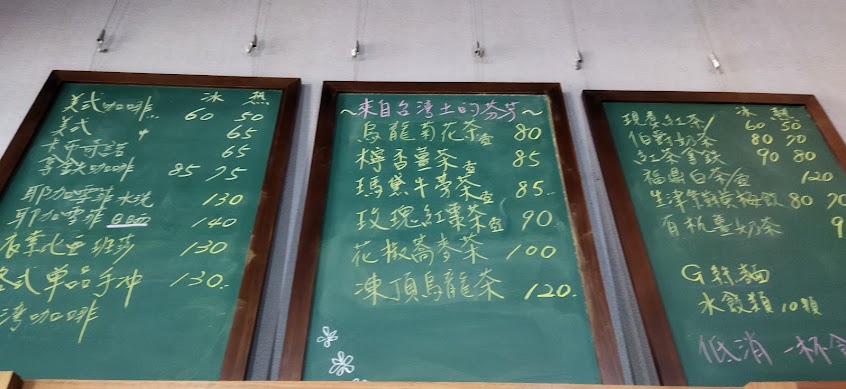 冰 熱
美式咖啡 60 50
美式 〃 65
卡布奇諾 65
拿鐵咖啡 85 75
耶加雪菲 水洗 130
耶加雪菲 日曬 140
班莎 130
各式單品手沖 130
灣咖啡
~來自台灣土的芬芳~
烏龍菊花茶壺 80
檸香薑茶壺 85
瑪黛牛蒡茶壺 85
玫瑰紅棗茶壺 90
花椒蕎麥茶 100
凍頂烏龍茶 120
冰 熱
紅茶 60 50
伯爵奶茶 80 70
紅茶拿鐵 90 80
福鼎白茶/壺 120
生津 梅飲 80 70
有機薑奶茶 9
水餃類 10顆
低消 一杯